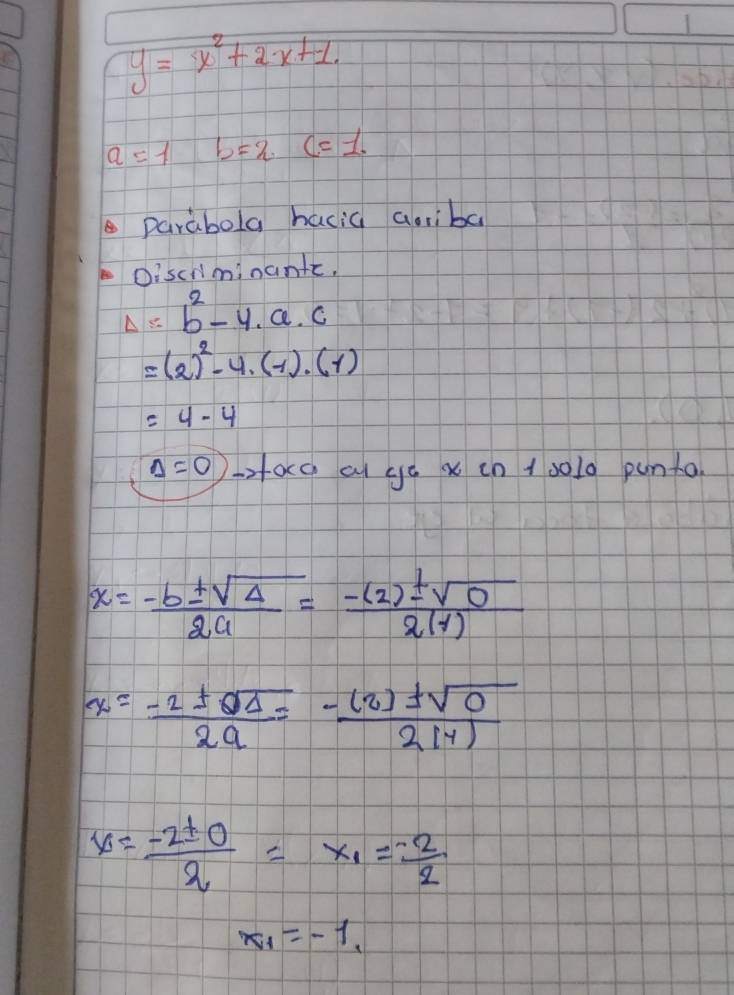 y = x² + 2x + 1.
a = 1 b = 2 c = 1.
Parábola hacia arriba
Discriminante.
Δ = b² - 4.a.c
= (2)² - 4.(1).(1)
= 4 - 4
Δ = 0 → toca al eje x en 1 solo punto.
x = -b ± √Δ / 2a = -(2) ± √0 / 2(1)
x = -2 ± 0Δ / 2a = -(2) ± √0 / 2(1)
x = -2 ± 0 / 2 = x₁ = -2 / 2
x₁ = -1.